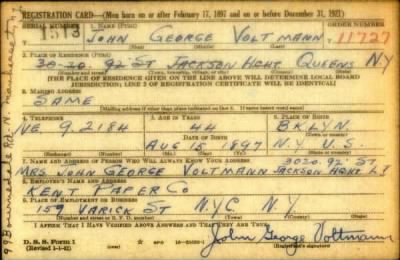 REGISTRATION CARD—(Men born on or after February 17, 1897 and on or before December 31, 1921)
SERIAL NUMBER 1. NAME (Print) ORDER NUMBER
1513 JOHN GEORGE VOLTMANN 11727
(First) (Middle) (Last)
2. PLACE OF RESIDENCE (Print)
30-20 92 ST JACKSON HGHT QUEENS N.Y
(Number and street) (Town, township, village, or city) (County) (State)
[THE PLACE OF RESIDENCE GIVEN ON THE LINE ABOVE WILL DETERMINE LOCAL BOARD
JURISDICTION; LINE 2 OF REGISTRATION CERTIFICATE WILL BE IDENTICAL]
3. MAILING ADDRESS
SAME
[Mailing address if other than place indicated on line 2. If same insert word same]
4. TELEPHONE 5. AGE IN YEARS 6. PLACE OF BIRTH
NE. 9.2184 44 BKLYN.
DATE OF BIRTH
AUG 15 1897 N.Y. U.S.
7. NAME AND ADDRESS OF PERSON WHO WILL ALWAYS KNOW YOUR ADDRESS 3020-92 ST
MRS JOHN GEORGE VOLTMANN JACKSON HGHT L.I
8. EMPLOYER'S NAME AND ADDRESS
KENT PAPER CO
9. PLACE OF EMPLOYMENT OR BUSINESS
159 VARICK ST N.Y.C. N.Y.
(Number and street or R. F. D. number) (Town) (County) (State)
I AFFIRM THAT I HAVE VERIFIED ABOVE ANSWERS AND THAT THEY ARE TRUE.
D. S. S. Form 1
(Revised 1-1-42)
John George Voltmann
(Registrant's signature)